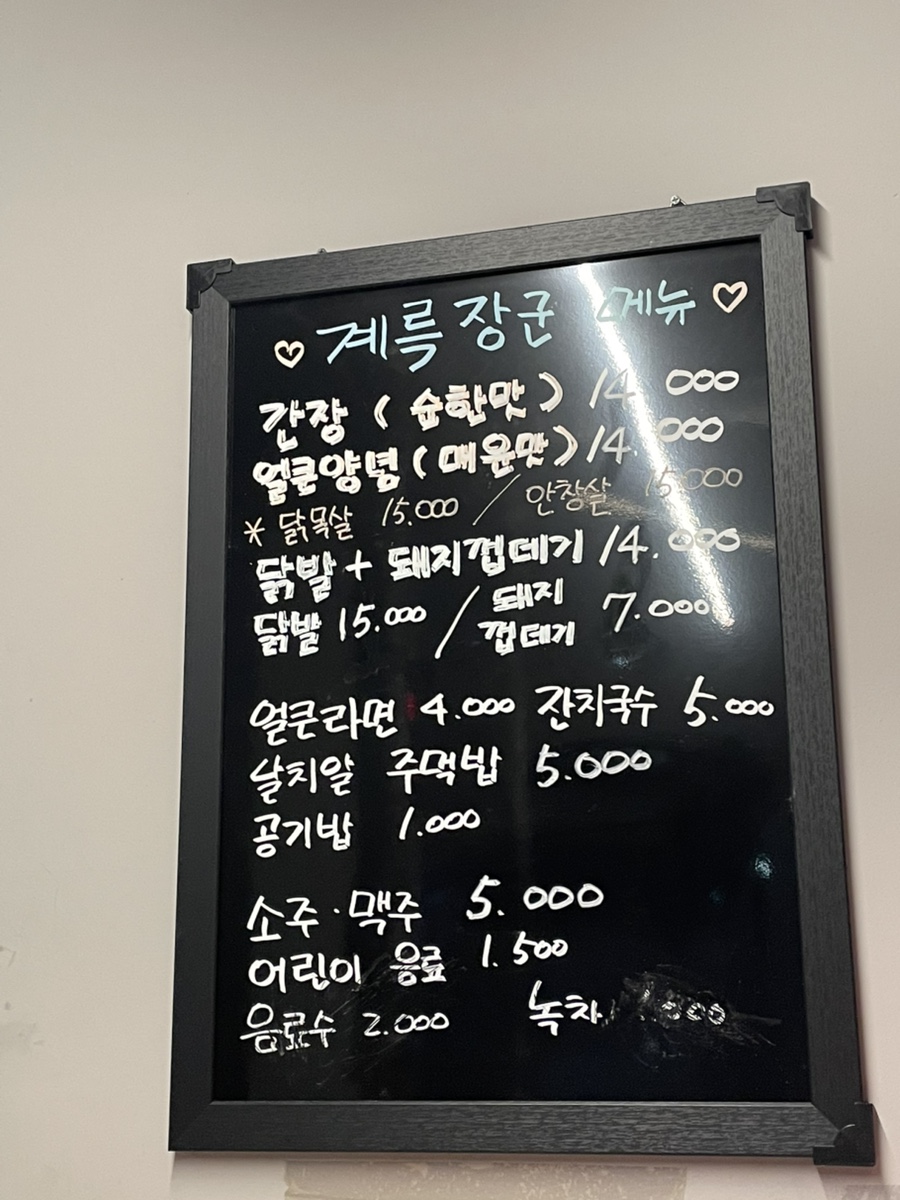 ♡ 계륵장군 메뉴 ♡
간장 ( 순한맛 ) 14.000
얼큰양념 ( 매운맛 ) 14.000
* 닭목살 15.000 / 안창살 15.000
닭발 + 돼지껍데기 14.000
닭발 15.000 / 돼지껍데기 7.000
얼큰라면 4.000 잔치국수 5.000
날치알 주먹밥 5.000
공기밥 1.000
소주·맥주 5.000
어린이 음료 1.500
음료수 2.000 녹차